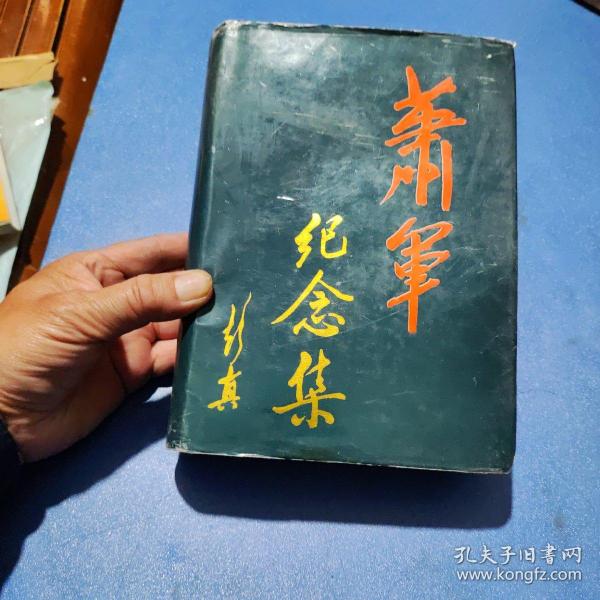 蕭軍
纪念集
彭真
孔夫子旧书网
www.kongfz.com